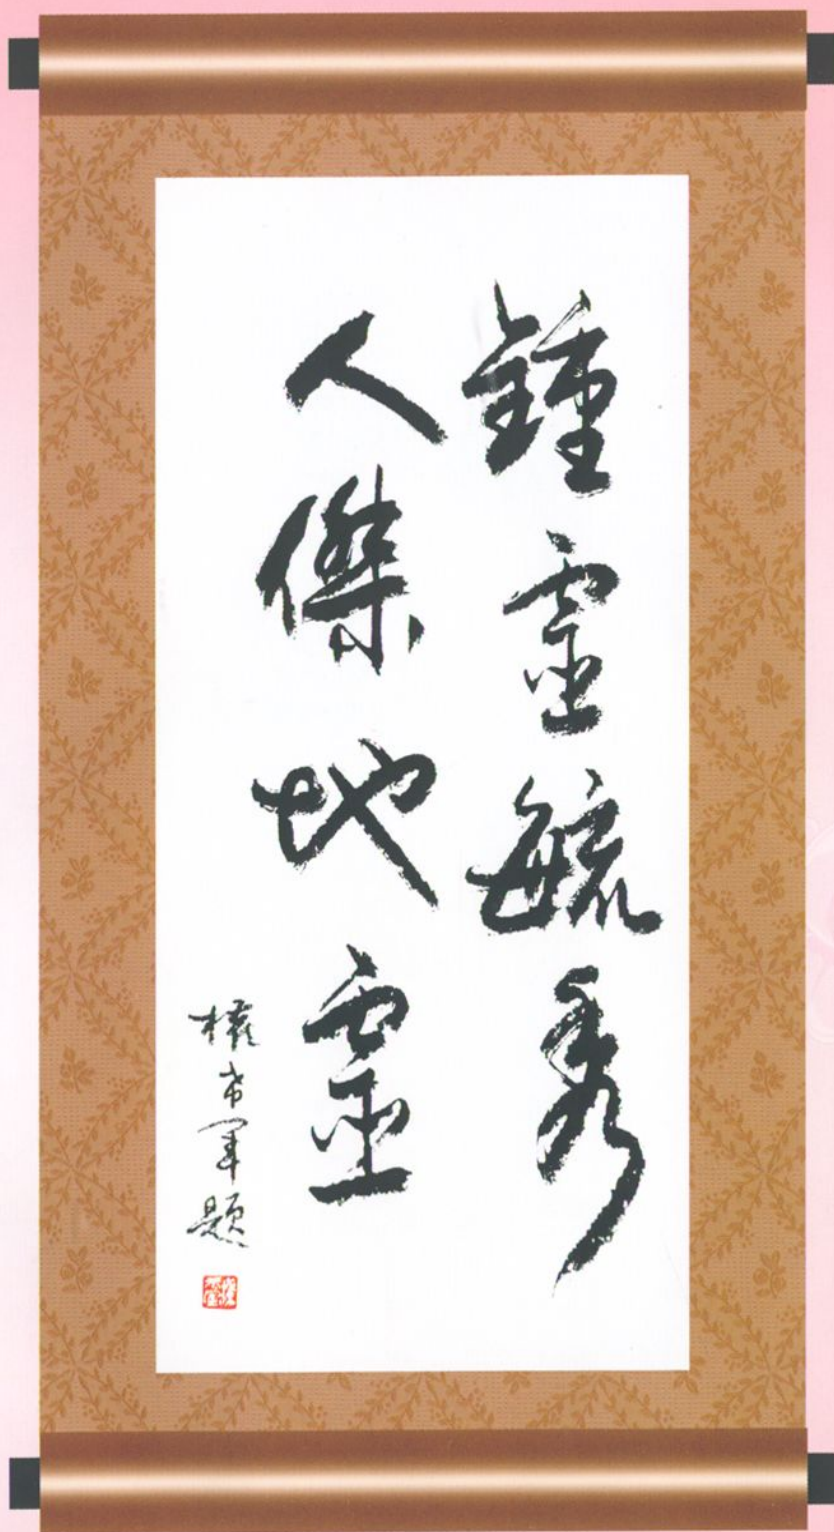 鍾靈毓秀
人傑地靈
權希軍題